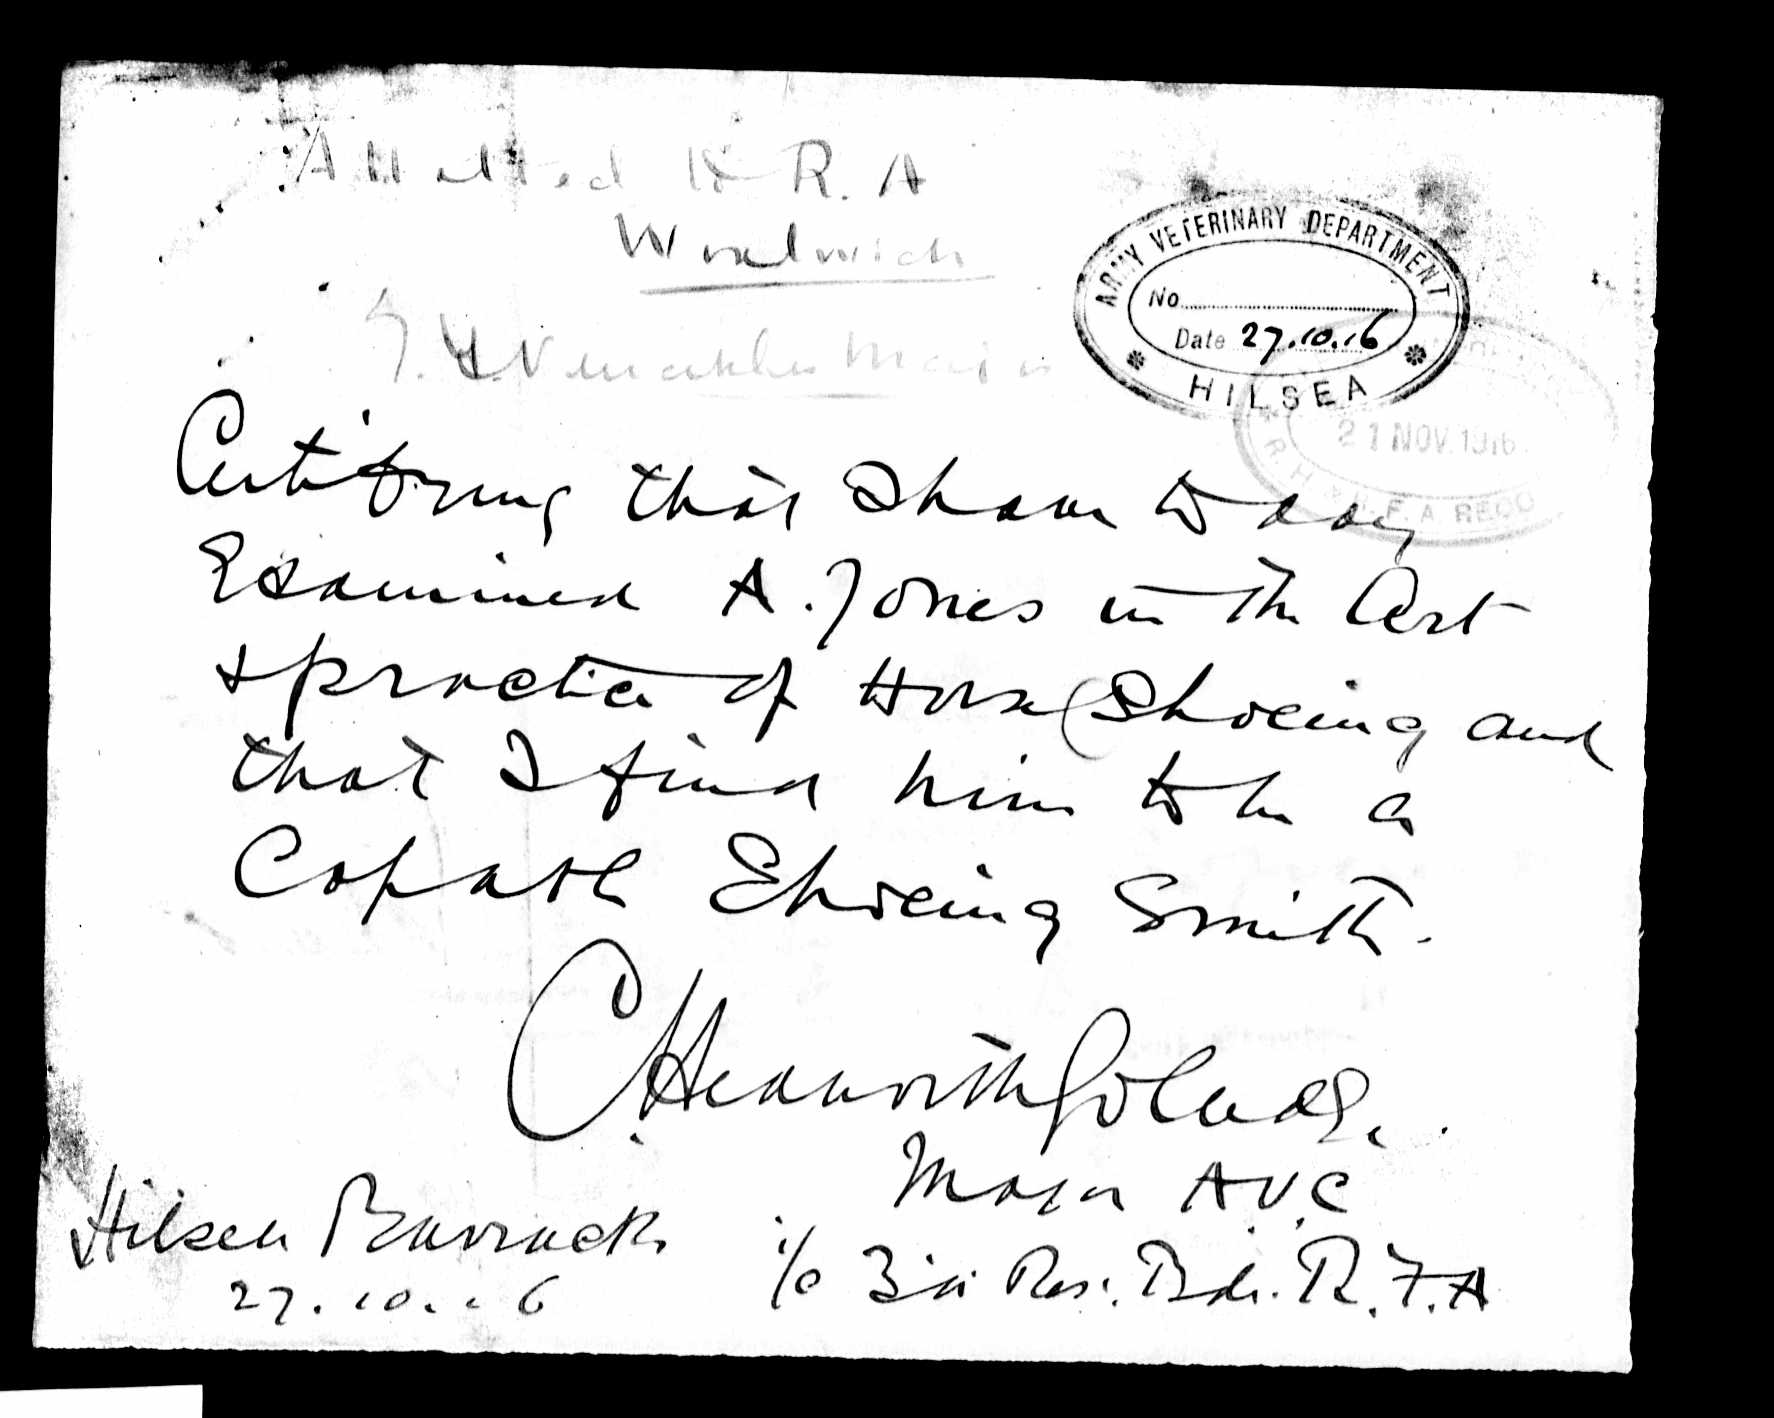 Allotted to R. A
Woolwich
Major
ARMY VETERINARY DEPARTMENT
No
Date 27.10.16
HILSEA
21 NOV. 1916
R.H. & R.F.A RECO
Certifying that I have to day
Examined A. Jones in the Art
& practice of Horse Shoeing and
that I find him to be a
Capable Shoeing Smith.
C Hepworth
Major AVC
Hilsea Barracks
i/c Res: Bde. R.F.A
27.10.16